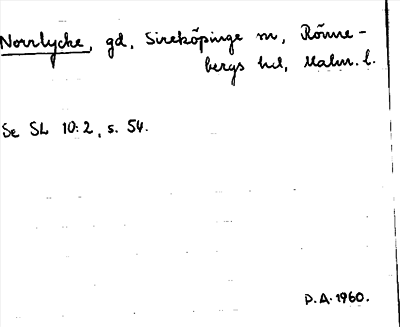 Norrlycke, gd, Sireköpinge sn, Rönne-
bergs hd, Malm. l.
Se SL 10:2, s. 54.
P.A. 1960.